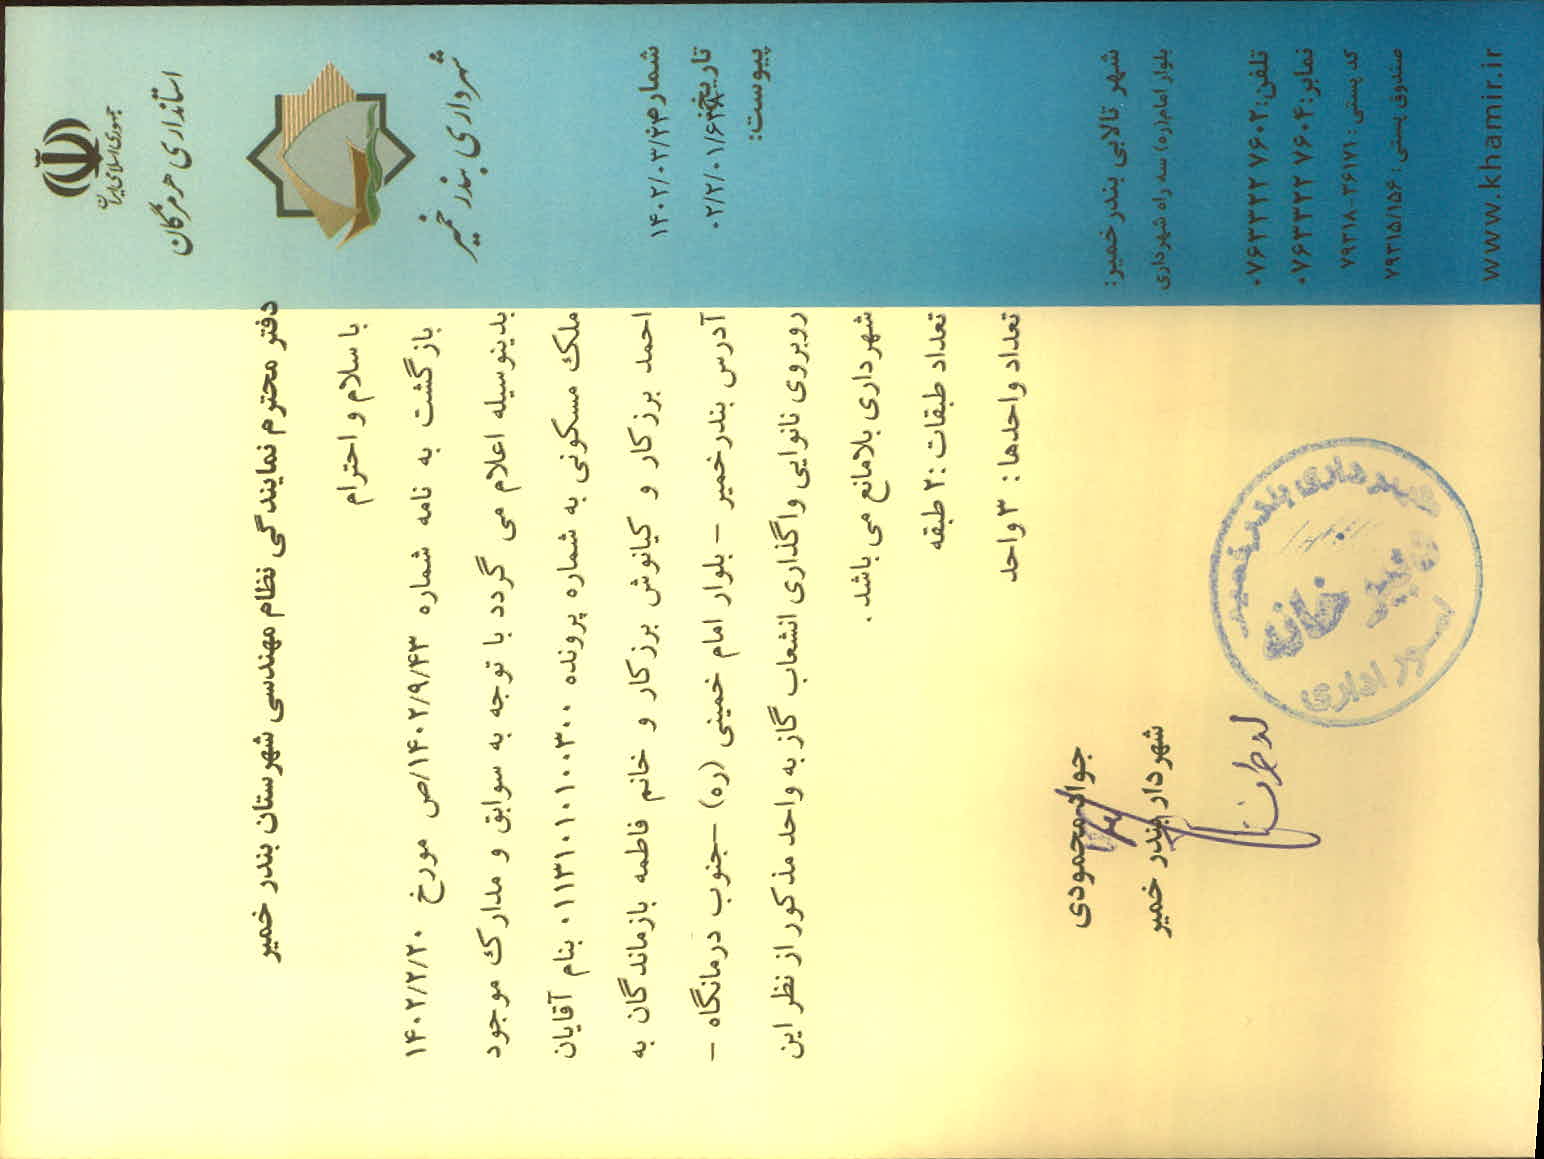 جمهوری اسلامی ایران
استانداری هرمزگان
شهرداری بندر خمیر
شماره:
۱۴۰۲/۰۳/۲۴
تاریخ:
۰۲/۲/۰۱/۶۳۸
پیوست:
دفتر محترم نمایندگی نظام مهندسی شهرستان بندر خمیر
با سلام و احترام
بازگشت به نامه شماره ۱۴۰۲/۹/۴۳/ص مورخ ۱۴۰۲/۲/۲۰
بدینوسیله اعلام می گردد با توجه به سوابق و مدارک موجود
ملک مسکونی به شماره پرونده ۰۱۱۳۱۰۱۰۱۰۰۳۰۰ بنام آقایان
احمد برزکار و کیانوش برزکار و خانم فاطمه بازماندگان به
آدرس بندرخمیر – بلوار امام خمینی (ره) –جنوب درمانگاه –
روبروی نانوایی واگذاری انشعاب گاز به واحد مذکور از نظر این
شهرداری بلامانع می باشد.
تعداد طبقات :۲ طبقه
تعداد واحدها : ۳ واحد
جواد محمودی
شهردار بندر خمیر
شهرداری بندر خمیر
دبیرخانه
امور اداری
شهر تالابی بندرخمیر:
بلوار امام(ره) سه راه شهرداری:
تلفن:۰۷۶۳۳۲۲۷۶۰۲
نمابر:۰۷۶۳۳۲۲۷۶۰۴
کد پستی : ۷۹۳۱۸-۳۶۱۷۱
صندوق پستی : ۷۹۳۱۵/۱۵۶
www.khamir.ir